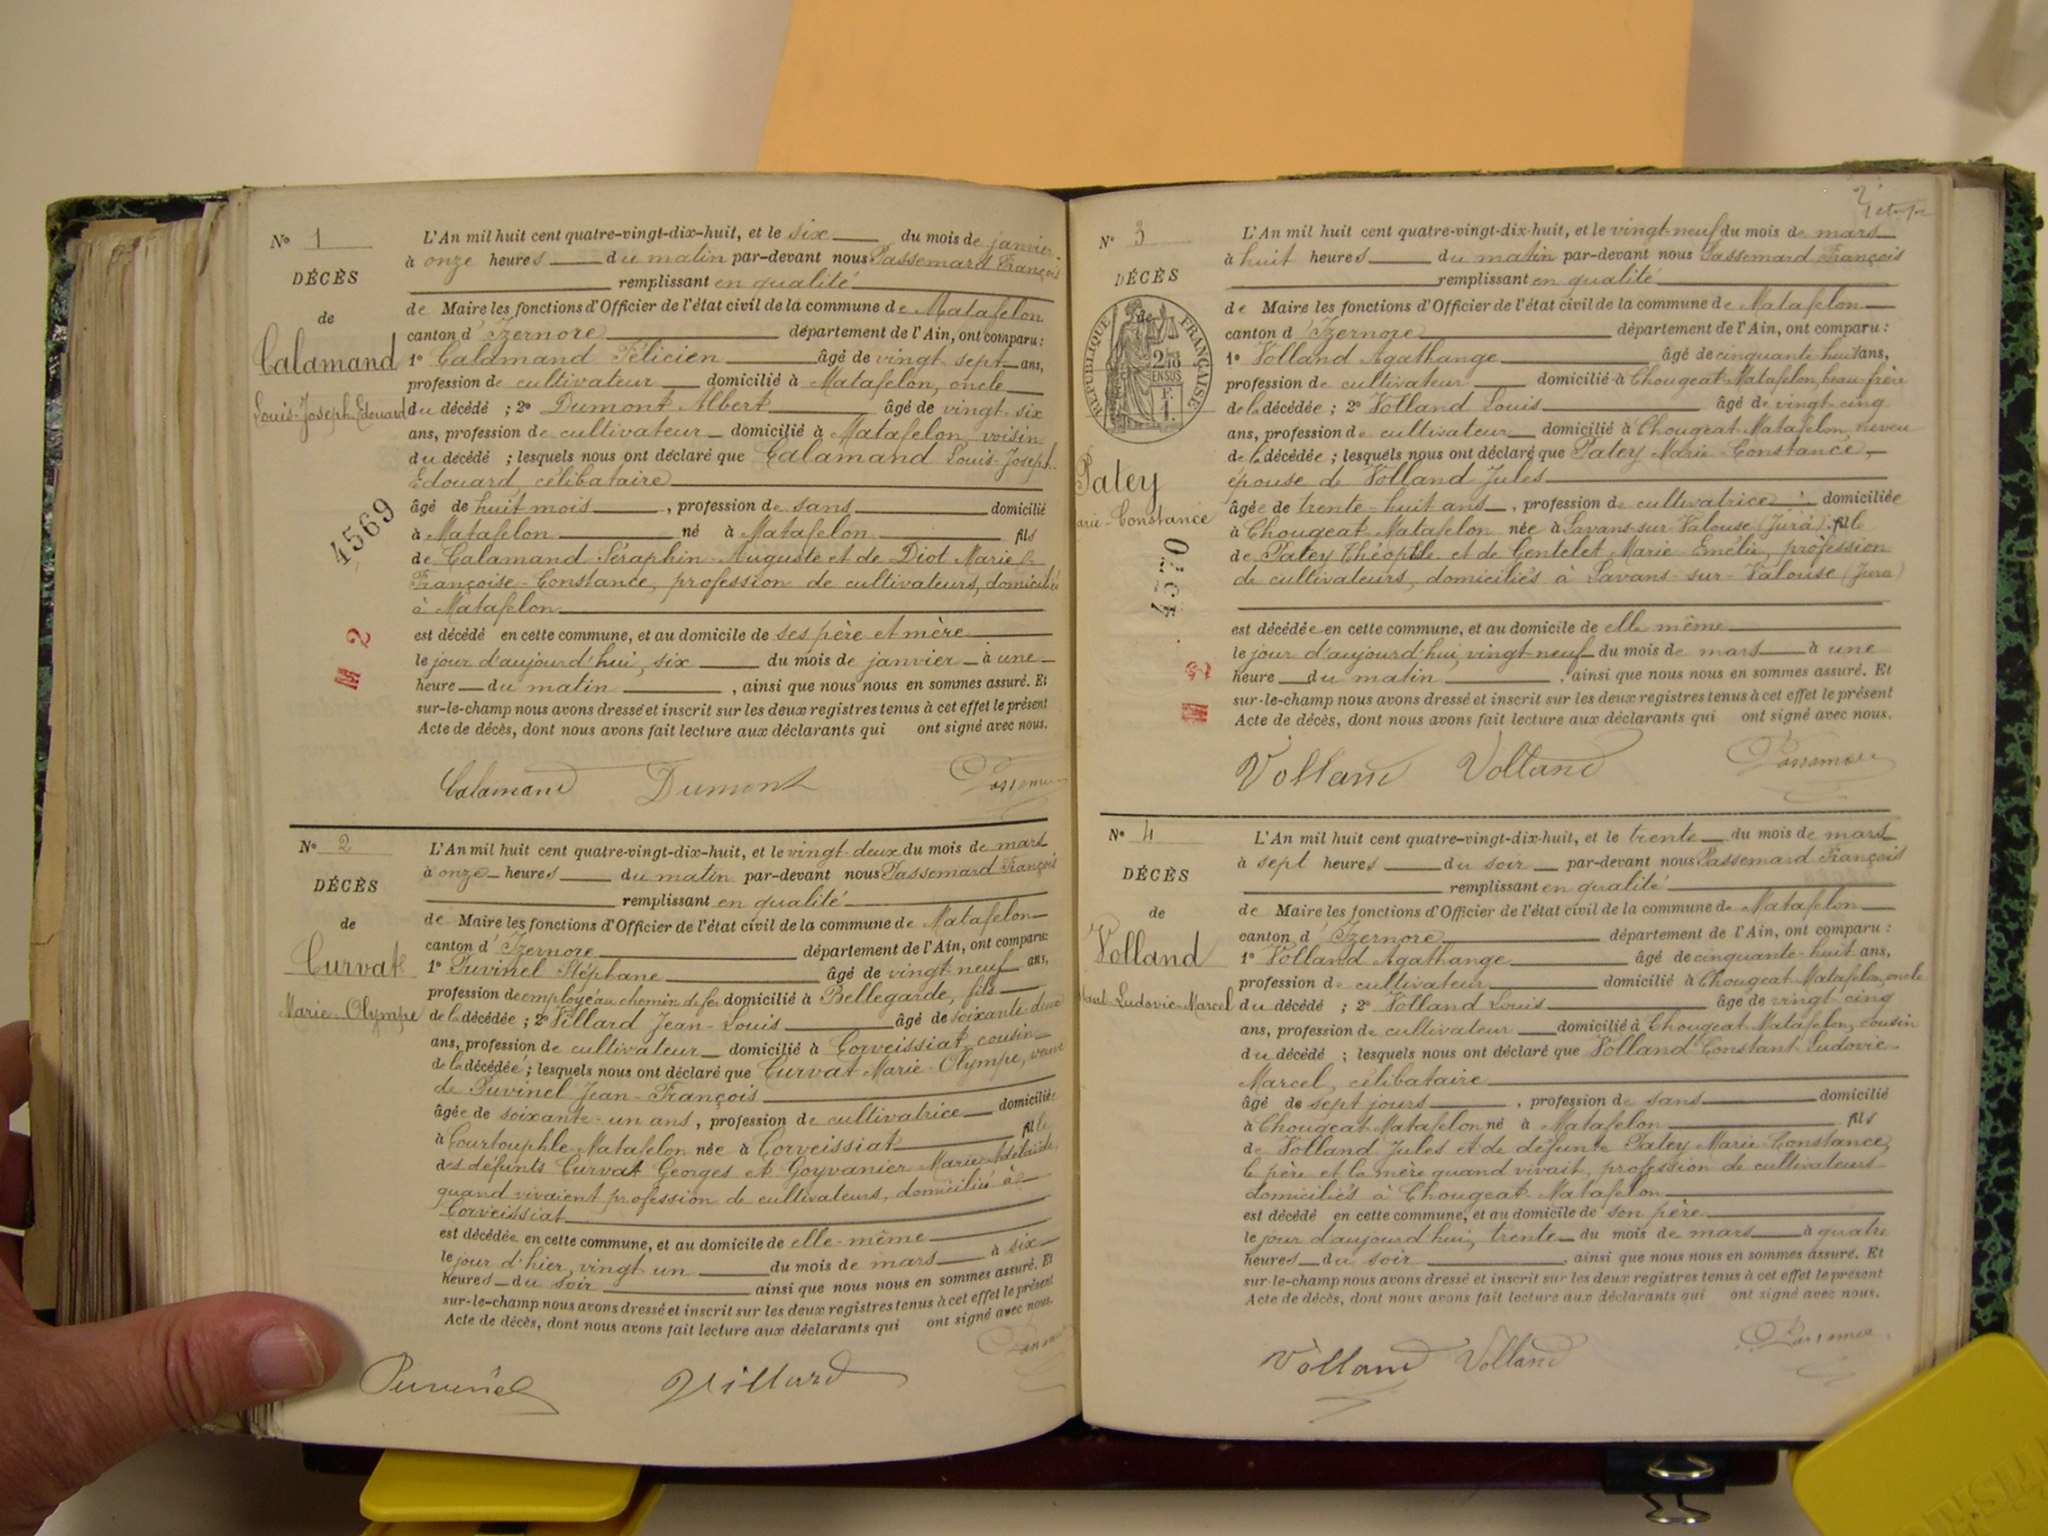 Nº 1
DÉCÈS
de
Calamand
Louis-Joseph-Edouard
4569
M 2
L'An mil huit cent quatre-vingt-dix-huit, et le six du mois de janvier
à onze heures du matin par-devant nous Passemard François
remplissant en qualité
de Maire les fonctions d'Officier de l'état civil de la commune de Matafelon
canton d'Izernore département de l'Ain, ont comparu :
1º Calamand Félicien âgé de vingt sept ans,
profession de cultivateur domicilié à Matafelon, oncle
du décédé ; 2º Dumont Albert âgé de vingt-six
ans, profession de cultivateur domicilié à Matafelon, voisin
du décédé ; lesquels nous ont déclaré que Calamand Louis-Joseph-
Edouard, célibataire
âgé de huit mois, profession de sans domicilié
à Matafelon né à Matafelon fils
de Calamand Séraphin-Auguste et de Diot Marie
Françoise-Constance, profession de cultivateurs, domiciliés
à Matafelon
est décédé en cette commune, et au domicile de ses père et mère
le jour d'aujourd'hui, six du mois de janvier à une
heure du matin, ainsi que nous nous en sommes assuré. Et
sur-le-champ nous avons dressé et inscrit sur les deux registres tenus à cet effet le présent
Acte de décès, dont nous avons fait lecture aux déclarants qui ont signé avec nous.
Calamand Dumont
Nº 2
DÉCÈS
de
Curvat
Marie-Olympe
L'An mil huit cent quatre-vingt-dix-huit, et le vingt-deux du mois de mars
à onze heures du matin par-devant nous Passemard François
remplissant en qualité
de Maire les fonctions d'Officier de l'état civil de la commune de Matafelon
canton d'Izernore département de l'Ain, ont comparu :
1º Puvinel Stéphane âgé de vingt neuf ans,
profession de employé au chemin de fer domicilié à Bellegarde, fils
de la décédée ; 2º Villard Jean-Louis âgé de soixante-deux
ans, profession de cultivateur domicilié à Corveissiat, cousin
de la décédée ; lesquels nous ont déclaré que Curvat Marie-Olympe, veuve
de Puvinel Jean-François
âgée de soixante-un ans, profession de cultivatrice domiciliée
à Courtouphle-Matafelon née à Corveissiat fille
des défunts Curvat Georges et Goyvanier Marie-Adelaïde,
quand vivaient profession de cultivateurs, domiciliés à
Corveissiat
est décédée en cette commune, et au domicile de elle-même
le jour d'hier, vingt un du mois de mars à six
heures du soir ainsi que nous nous en sommes assuré. Et
sur-le-champ nous avons dressé et inscrit sur les deux registres tenus à cet effet le présent
Acte de décès, dont nous avons fait lecture aux déclarants qui ont signé avec nous.
Puvinel Villard
Nº 3
DÉCÈS
de
RÉPUBLIQUE FRANÇAISE
Patey
Marie-Constance
4570
L'An mil huit cent quatre-vingt-dix-huit, et le vingt-neuf du mois de mars
à huit heures du matin par-devant nous Passemard François
remplissant en qualité
de Maire les fonctions d'Officier de l'état civil de la commune de Matafelon
canton d'Izernore département de l'Ain, ont comparu :
1º Volland Agathange âgé de cinquante huit ans,
profession de cultivateur domicilié à Chougeat-Matafelon, beau-frère
de la décédée ; 2º Volland Louis âgé de vingt-cinq
ans, profession de cultivateur domicilié à Chougeat-Matafelon, neveu
de la décédée ; lesquels nous ont déclaré que Patey Marie-Constance,
épouse de Volland Jules
âgée de trente-huit ans, profession de cultivatrice domiciliée
à Chougeat-Matafelon née à Savans-sur-Valouse (Jura) fille
de Patey Théophile et de Gentelet Marie-Emélie, profession
de cultivateurs, domiciliés à Savans-sur-Valouse (Jura)
est décédée en cette commune, et au domicile de elle même
le jour d'aujourd'hui, vingt-neuf du mois de mars à une
heure du matin, ainsi que nous nous en sommes assuré. Et
sur-le-champ nous avons dressé et inscrit sur les deux registres tenus à cet effet le présent
Acte de décès, dont nous avons fait lecture aux déclarants qui ont signé avec nous.
Volland Volland
Nº 4
DÉCÈS
de
Volland
Ludovic-Marcel
L'An mil huit cent quatre-vingt-dix-huit, et le trente du mois de mars
à sept heures du soir par-devant nous Passemard François
remplissant en qualité
de Maire les fonctions d'Officier de l'état civil de la commune de Matafelon
canton d'Izernore département de l'Ain, ont comparu :
1º Volland Agathange âgé de cinquante-huit ans,
profession de cultivateur domicilié à Chougeat-Matafelon, oncle
du décédé ; 2º Volland Louis âgé de vingt-cinq
ans, profession de cultivateur domicilié à Chougeat-Matafelon, cousin
du décédé ; lesquels nous ont déclaré que Volland Constant Ludovic-
Marcel, célibataire
âgé de sept jours, profession de sans domicilié
à Chougeat-Matafelon né à Matafelon fils
de Volland Jules et de défunte Patey Marie-Constance,
le père et la mère quand vivait, profession de cultivateurs
domiciliés à Chougeat-Matafelon
est décédé en cette commune, et au domicile de son père
le jour d'aujourd'hui, trente du mois de mars à quatre
heures du soir, ainsi que nous nous en sommes assuré. Et
sur-le-champ nous avons dressé et inscrit sur les deux registres tenus à cet effet le présent
Acte de décès, dont nous avons fait lecture aux déclarants qui ont signé avec nous.
Volland Volland